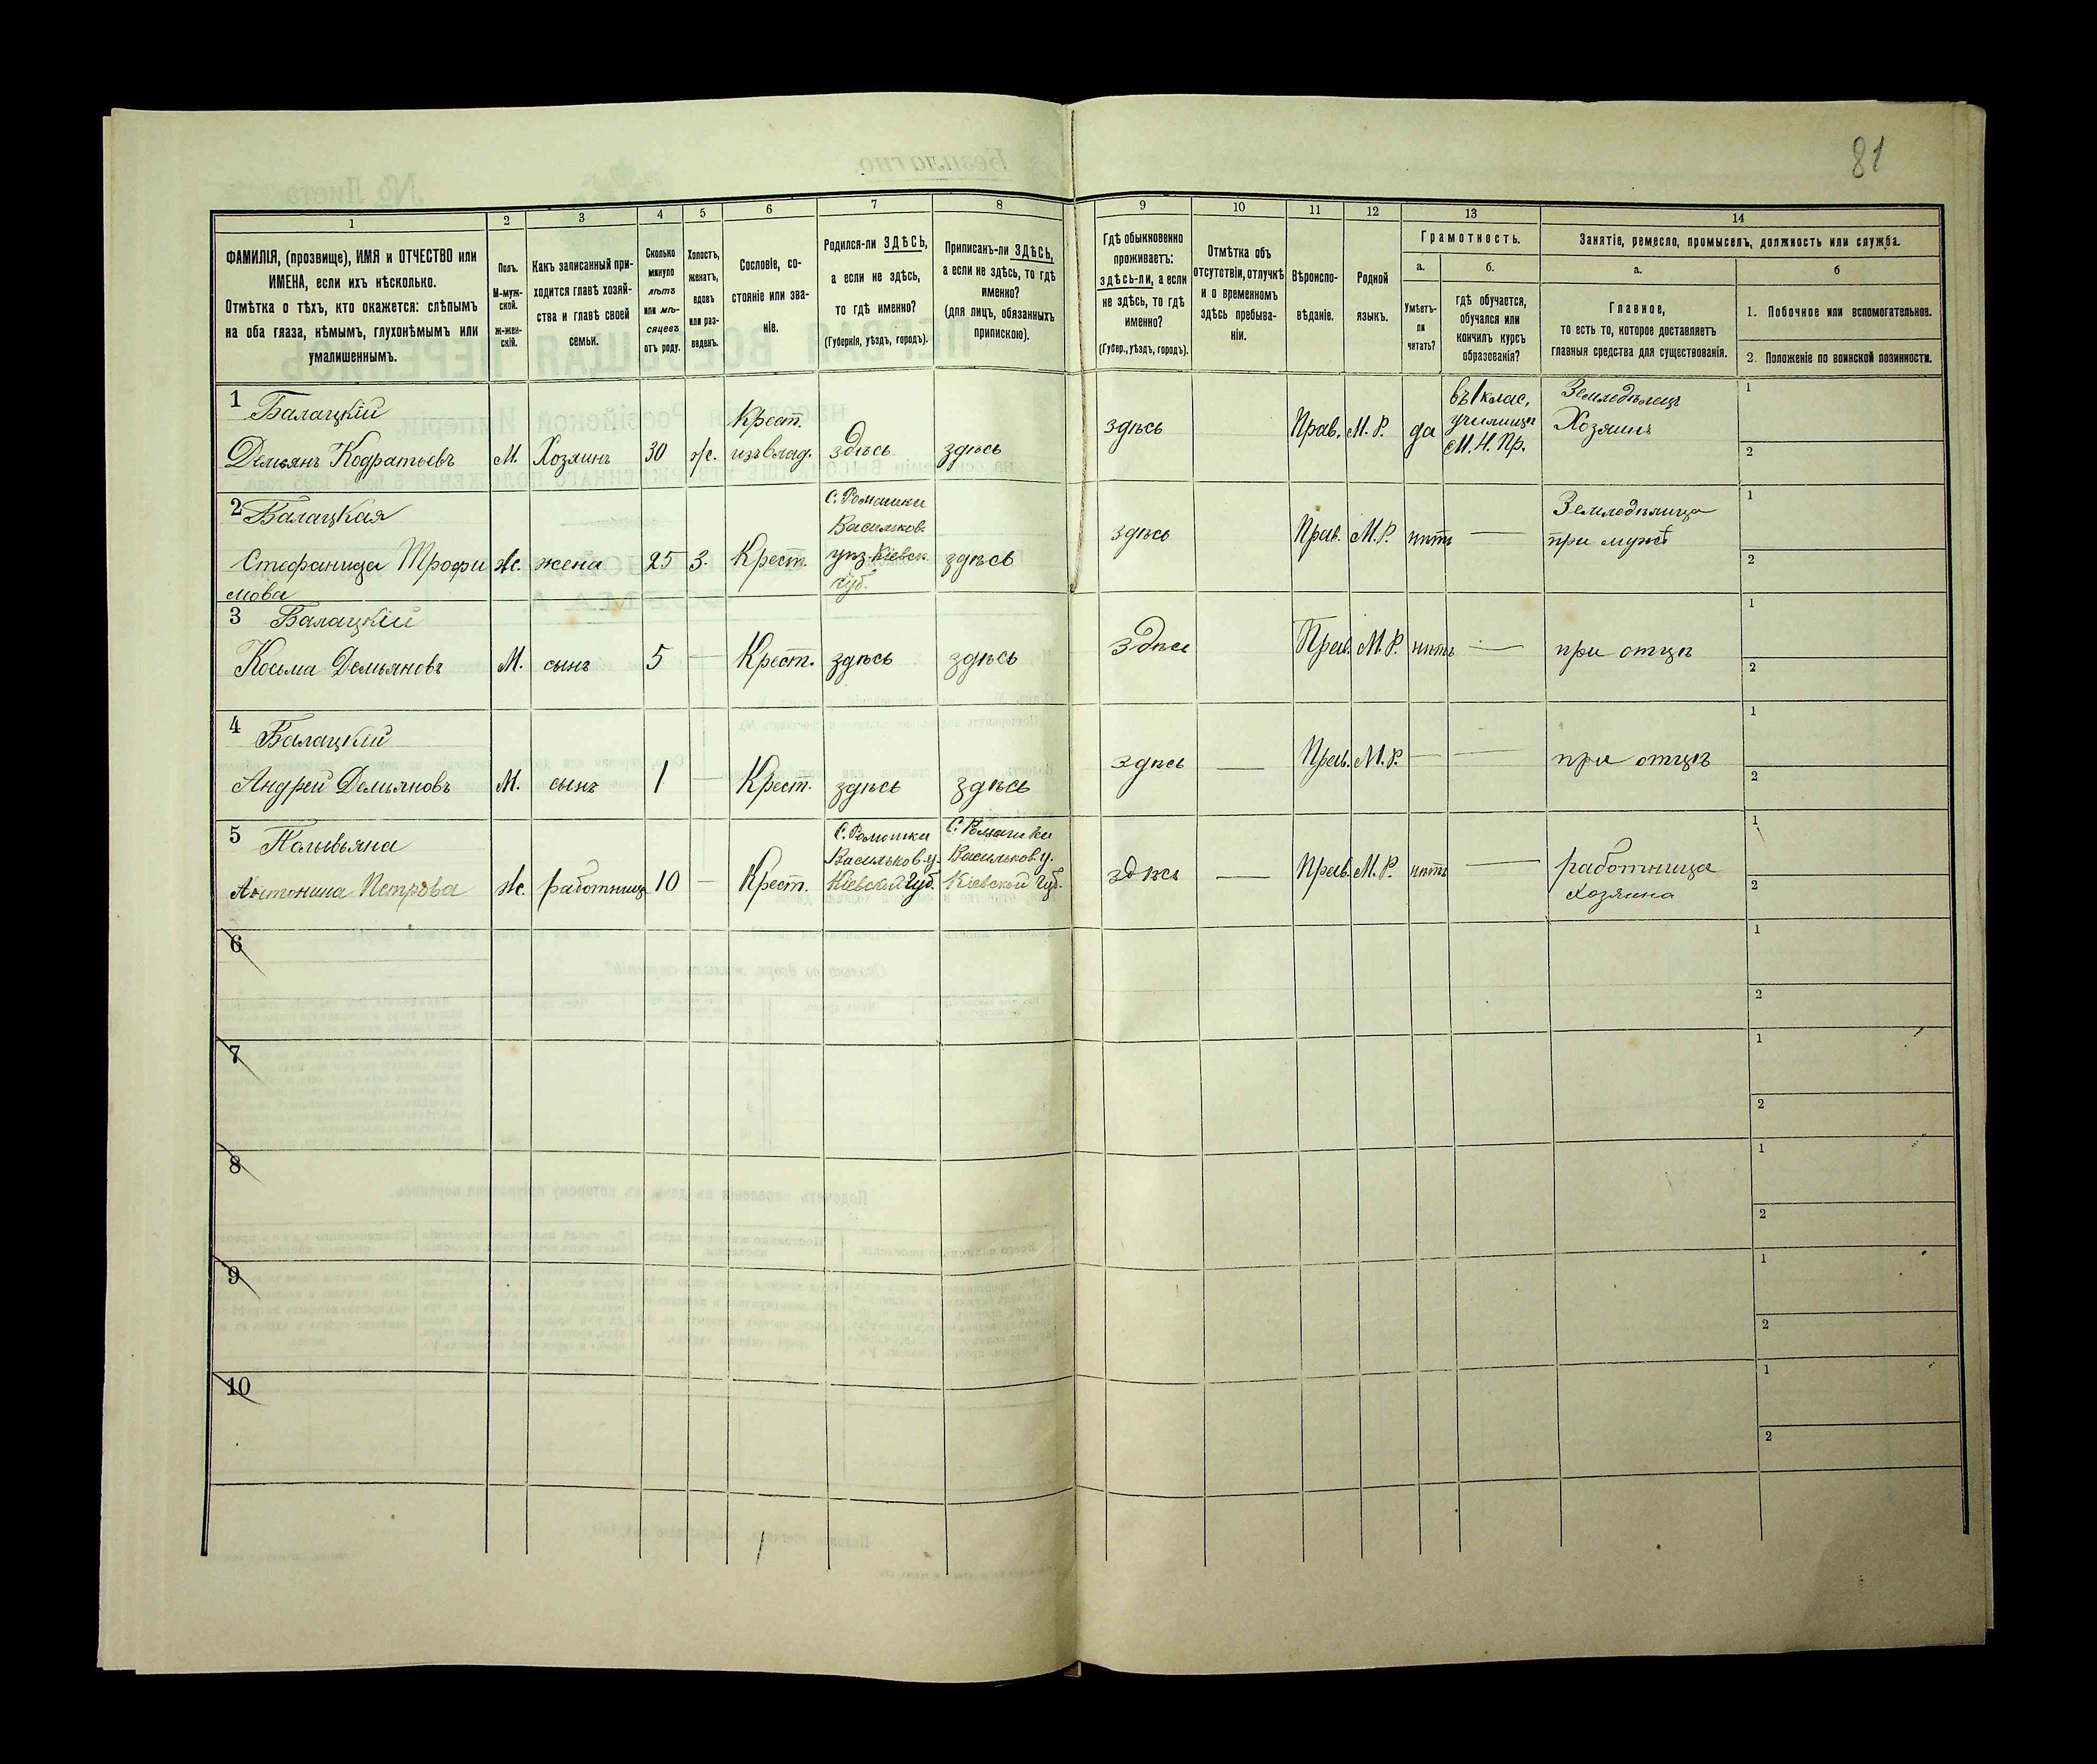 81
1
2
3
4
5
6
7
8
9
10
11
12
13
14
ФАМИЛІЯ, (прозвище), ИМЯ и ОТЧЕСТВО или
ИМЕНА, если ихъ нѣсколько.
Отмѣтка о тѣхъ, кто окажется: слѣпымъ
на оба глаза, нѣмымъ, глухонѣмымъ или
умалишеннымъ.
Полъ.
М-муж-
ской.
ж-жен-
скій.
Какъ записанный при-
ходится главѣ хозяй-
ства и главѣ своей
семьи.
Сколько
минуло
лѣтъ
или мѣ-
сяцевъ
отъ роду.
Холостъ,
женатъ,
вдовъ
или раз-
веденъ.
Сословіе, со-
стояніе или зва-
ніе.
Родился-ли ЗДѢСЬ,
а если не здѣсь,
то гдѣ именно?
(Губернія, уѣздъ, городъ).
Приписанъ-ли ЗДѢСЬ,
а если не здѣсь, то гдѣ
именно?
(для лицъ, обязанныхъ
припискою).
Гдѣ обыкновенно
проживаетъ:
здѣсь-ли, а если
не здѣсь, то гдѣ
именно?
(Губер., уѣздъ, городъ).
Отмѣтка объ
отсутствіи, отлучкѣ
и о временномъ
здѣсь пребыва-
ніи.
Вѣроиспо-
вѣданіе.
Родной
языкъ.
Грамотность.
а.
Умѣетъ-
ли
читать?
б.
гдѣ обучается,
обучался или
кончилъ курсъ
образованія?
Занятіе, ремесло, промыселъ, должность или служба.
а.
Главное,
то есть то, которое доставляетъ
главныя средства для существованія.
б
1. Побочное или вспомогательное.
2. Положеніе по воинской повинности.
1 Балацкій
Демьянъ Кодратьевъ М. Хозяинъ 30 ж. Крест.
изъ влад. здѣсь здѣсь здѣсь Прав. М. Р. да въ 1 клас.
училищѣ
М. Н. Пр. Земледѣлецъ
Хозяинъ 1
2
2 Балацкая
Стефанида Трофи
мова ж. жена 25 з. Крест. С. Ромашки
Васильков.
уѣз. Кіевск.
губ. здѣсь здѣсь Прав. М. Р. нѣтъ — Земледѣлица
при мужѣ 1
2
3 Балацкій
Косьма Демьяновъ М. сынъ 5 — Крест. здѣсь здѣсь здѣсь Прав. М. Р. нѣтъ — при отцѣ 1
2
4 Балацкій
Андрей Демьяновъ М. сынъ 1 — Крест. здѣсь здѣсь здѣсь — Прав. М. Р. — — при отцѣ 1
2
5
Антонина Петрова ж. работница 10 — Крест. С. Ромашки
Васильков. у.
Кіевской Губ. С. Ромашки
Васильков. у.
Кіевской Губ. здѣсь — Прав. М. Р. нѣтъ — работница
хозяина 1
2
6 1
2
7 1
2
8 1
2
9 1
2
10 1
2